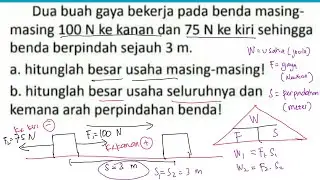 Dua buah gaya bekerja pada benda masing-
masing 100 N ke kanan dan 75 N ke kiri sehingga
benda berpindah sejauh 3 m.
a. hitunglah besar usaha masing-masing!
b. hitunglah besar usaha seluruhnya dan
kemana arah perpindahan benda!
W = usaha (Joule)
F = gaya
(Newton)
S = perpindahan
(meter)
ke kiri -
F2 = 75 N
F1 = 100 N
ke kanan +
S = 3 m
S1 = S2 = 3 m
W
F S
W1 = F1. S1
W2 = F2. S2